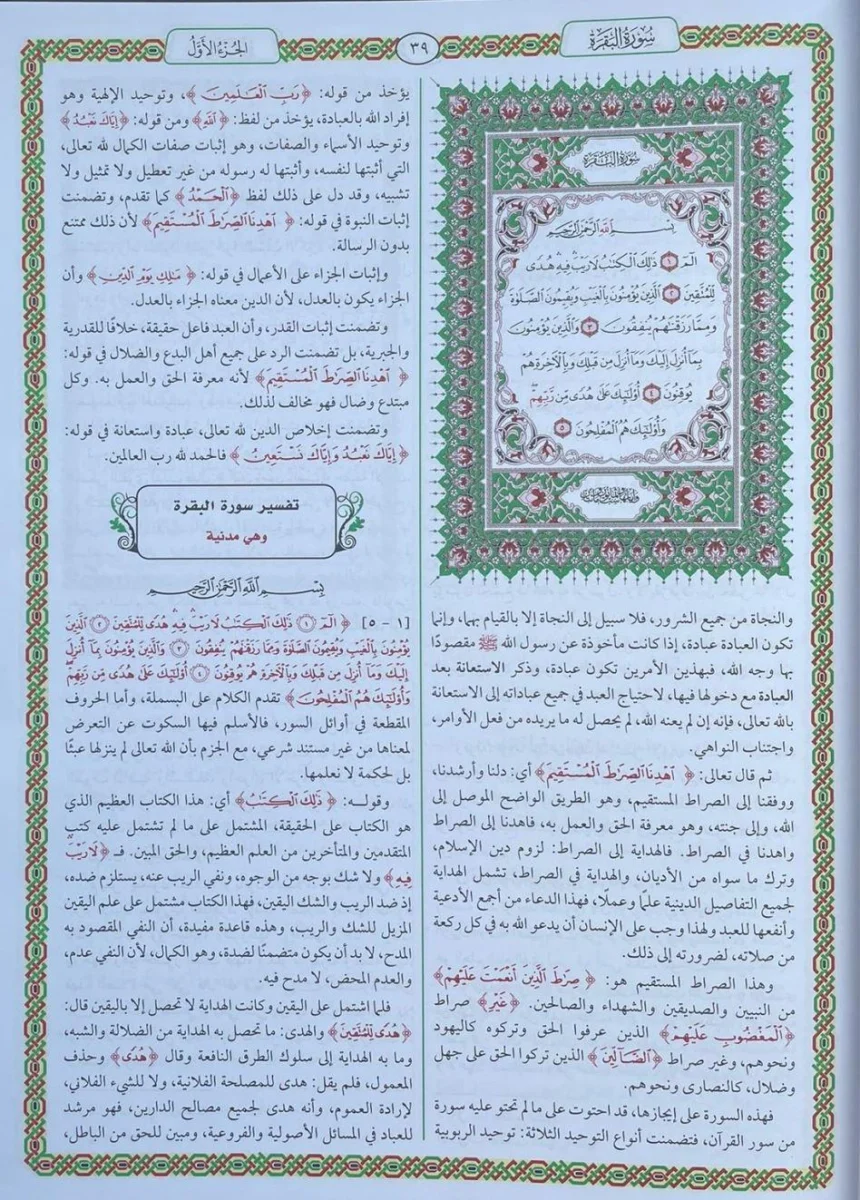 سورة البقرة
٣٩
الجزء الأول
سورة البقرة
بسم الله الرحمن الرحيم
الٓمٓ ١ ذَٰلِكَ ٱلْكِتَٰبُ لَا رَيْبَ ۛ فِيهِ ۛ هُدًى
لِّلْمُتَّقِينَ ٢ ٱلَّذِينَ يُؤْمِنُونَ بِٱلْغَيْبِ وَيُقِيمُونَ ٱلصَّلَوٰةَ
وَمِمَّا رَزَقْنَٰهُمْ يُنفِقُونَ ٣ وَٱلَّذِينَ يُؤْمِنُونَ
بِمَآ أُنزِلَ إِلَيْكَ وَمَآ أُنزِلَ مِن قَبْلِكَ وَبِٱلْءَاخِرَةِ هُمْ
يُوقِنُونَ ٤ أُو۟لَٰٓئِكَ عَلَىٰ هُدًى مِّن رَّبِّهِمْ
وَأُو۟لَٰٓئِكَ هُمُ ٱلْمُفْلِحُونَ ٥
والنجاة من جميع الشرور، فلا سبيل إلى النجاة إلا بالقيام بهما، وإنما
تكون العبادة عبادة، إذا كانت مأخوذة عن رسول الله ﷺ مقصودًا
بها وجه الله، فبهذين الأمرين تكون عبادة، وذكر الاستعانة بعد
العبادة مع دخولها فيها، لاحتياج العبد في جميع عباداته إلى الاستعانة
بالله تعالى، فإنه إن لم يعنه الله، لم يحصل له ما يريده من فعل الأوامر،
واجتناب النواهي.
ثم قال تعالى: ﴿ٱهْدِنَا ٱلصِّرَٰطَ ٱلْمُسْتَقِيمَ﴾ أي: دلنا وأرشدنا،
ووفقنا إلى الصراط المستقيم، وهو الطريق الواضح الموصل إلى
الله، وإلى جنته، وهو معرفة الحق والعمل به، فاهدنا إلى الصراط
واهدنا في الصراط. فالهداية إلى الصراط: لزوم دين الإسلام،
وترك ما سواه من الأديان، والهداية في الصراط، تشمل الهداية
لجميع التفاصيل الدينية علمًا وعملًا، فهذا الدعاء من أجمع الأدعية
وأنفعها للعبد ولهذا وجب على الإنسان أن يدعو الله به في كل ركعة
من صلاته، لضرورته إلى ذلك.
وهذا الصراط المستقيم هو: ﴿صِرَٰطَ ٱلَّذِينَ أَنْعَمْتَ عَلَيْهِمْ﴾
من النبيين والصديقين والشهداء والصالحين. ﴿غَيْرِ﴾ صراط
﴿ٱلْمَغْضُوبِ عَلَيْهِمْ﴾ الذين عرفوا الحق وتركوه كاليهود
ونحوهم، وغير صراط ﴿ٱلضَّآلِّينَ﴾ الذين تركوا الحق على جهل
وضلال، كالنصارى ونحوهم.
فهذه السورة على إيجازها، قد احتوت على ما لم تحتو عليه سورة
من سور القرآن، فتضمنت أنواع التوحيد الثلاثة: توحيد الربوبية
يؤخذ من قوله: ﴿رَبِّ ٱلْعَٰلَمِينَ﴾، وتوحيد الإلهية وهو
إفراد الله بالعبادة، يؤخذ من لفظ: ﴿ٱللَّهِ﴾ ومن قوله: ﴿إِيَّاكَ نَعْبُدُ﴾
وتوحيد الأسماء والصفات، وهو إثبات صفات الكمال لله تعالى،
التي أثبتها لنفسه، وأثبتها له رسوله من غير تعطيل ولا تمثيل ولا
تشبيه، وقد دل على ذلك لفظ ﴿ٱلْحَمْدُ﴾ كما تقدم، وتضمنت
إثبات النبوة في قوله: ﴿ٱهْدِنَا ٱلصِّرَٰطَ ٱلْمُسْتَقِيمَ﴾ لأن ذلك ممتنع
بدون الرسالة.
وإثبات الجزاء على الأعمال في قوله: ﴿مَٰلِكِ يَوْمِ ٱلدِّينِ﴾ وأن
الجزاء يكون بالعدل، لأن الدين معناه الجزاء بالعدل.
وتضمنت إثبات القدر، وأن العبد فاعل حقيقة، خلافًا للقدرية
والجبرية، بل تضمنت الرد على جميع أهل البدع والضلال في قوله:
﴿ٱهْدِنَا ٱلصِّرَٰطَ ٱلْمُسْتَقِيمَ﴾ لأنه معرفة الحق والعمل به. وكل
مبتدع وضال فهو مخالف لذلك.
وتضمنت إخلاص الدين لله تعالى، عبادة واستعانة في قوله:
﴿إِيَّاكَ نَعْبُدُ وَإِيَّاكَ نَسْتَعِينُ﴾ فالحمد لله رب العالمين.
تفسير سورة البقرة
وهي مدنية
بسم الله الرحمن الرحيم
[١ - ٥] ﴿الٓمٓ ١ ذَٰلِكَ ٱلْكِتَٰبُ لَا رَيْبَ ۛ فِيهِ ۛ هُدًى لِّلْمُتَّقِينَ ٢ ٱلَّذِينَ
يُؤْمِنُونَ بِٱلْغَيْبِ وَيُقِيمُونَ ٱلصَّلَوٰةَ وَمِمَّا رَزَقْنَٰهُمْ يُنفِقُونَ ٣ وَٱلَّذِينَ يُؤْمِنُونَ بِمَآ أُنزِلَ
إِلَيْكَ وَمَآ أُنزِلَ مِن قَبْلِكَ وَبِٱلْءَاخِرَةِ هُمْ يُوقِنُونَ ٤ أُو۟لَٰٓئِكَ عَلَىٰ هُدًى مِّن رَّبِّهِمْ
وَأُو۟لَٰٓئِكَ هُمُ ٱلْمُفْلِحُونَ﴾ تقدم الكلام على البسملة، وأما الحروف
المقطعة في أوائل السور، فالأسلم فيها السكوت عن التعرض
لمعناها من غير مستند شرعي، مع الجزم بأن الله تعالى لم ينزلها عبثًا
بل لحكمة لا نعلمها.
وقولـه: ﴿ذَٰلِكَ ٱلْكِتَٰبُ﴾ أي: هذا الكتاب العظيم الذي
هو الكتاب على الحقيقة، المشتمل على ما لم تشتمل عليه كتب
المتقدمين والمتأخرين من العلم العظيم، والحق المبين. فـ ﴿لَا رَيْبَ ۛ
فِيهِ﴾ ولا شك بوجه من الوجوه، ونفي الريب عنه، يستلزم ضده،
إذ ضد الريب والشك اليقين، فهذا الكتاب مشتمل على علم اليقين
المزيل للشك والريب، وهذه قاعدة مفيدة، أن النفي المقصود به
المدح، لا بد أن يكون متضمنًا لضدة، وهو الكمال، لأن النفي عدم،
والعدم المحض، لا مدح فيه.
فلما اشتمل على اليقين وكانت الهداية لا تحصل إلا باليقين قال:
﴿هُدًى لِّلْمُتَّقِينَ﴾ والهدى: ما تحصل به الهداية من الضلالة والشبه،
وما به الهداية إلى سلوك الطرق النافعة وقال ﴿هُدًى﴾ وحذف
المعمول، فلم يقل: هدى للمصلحة الفلانية، ولا للشيء الفلاني،
لإرادة العموم، وأنه هدى لجميع مصالح الدارين، فهو مرشد
للعباد في المسائل الأصولية والفروعية، ومبين للحق من الباطل،